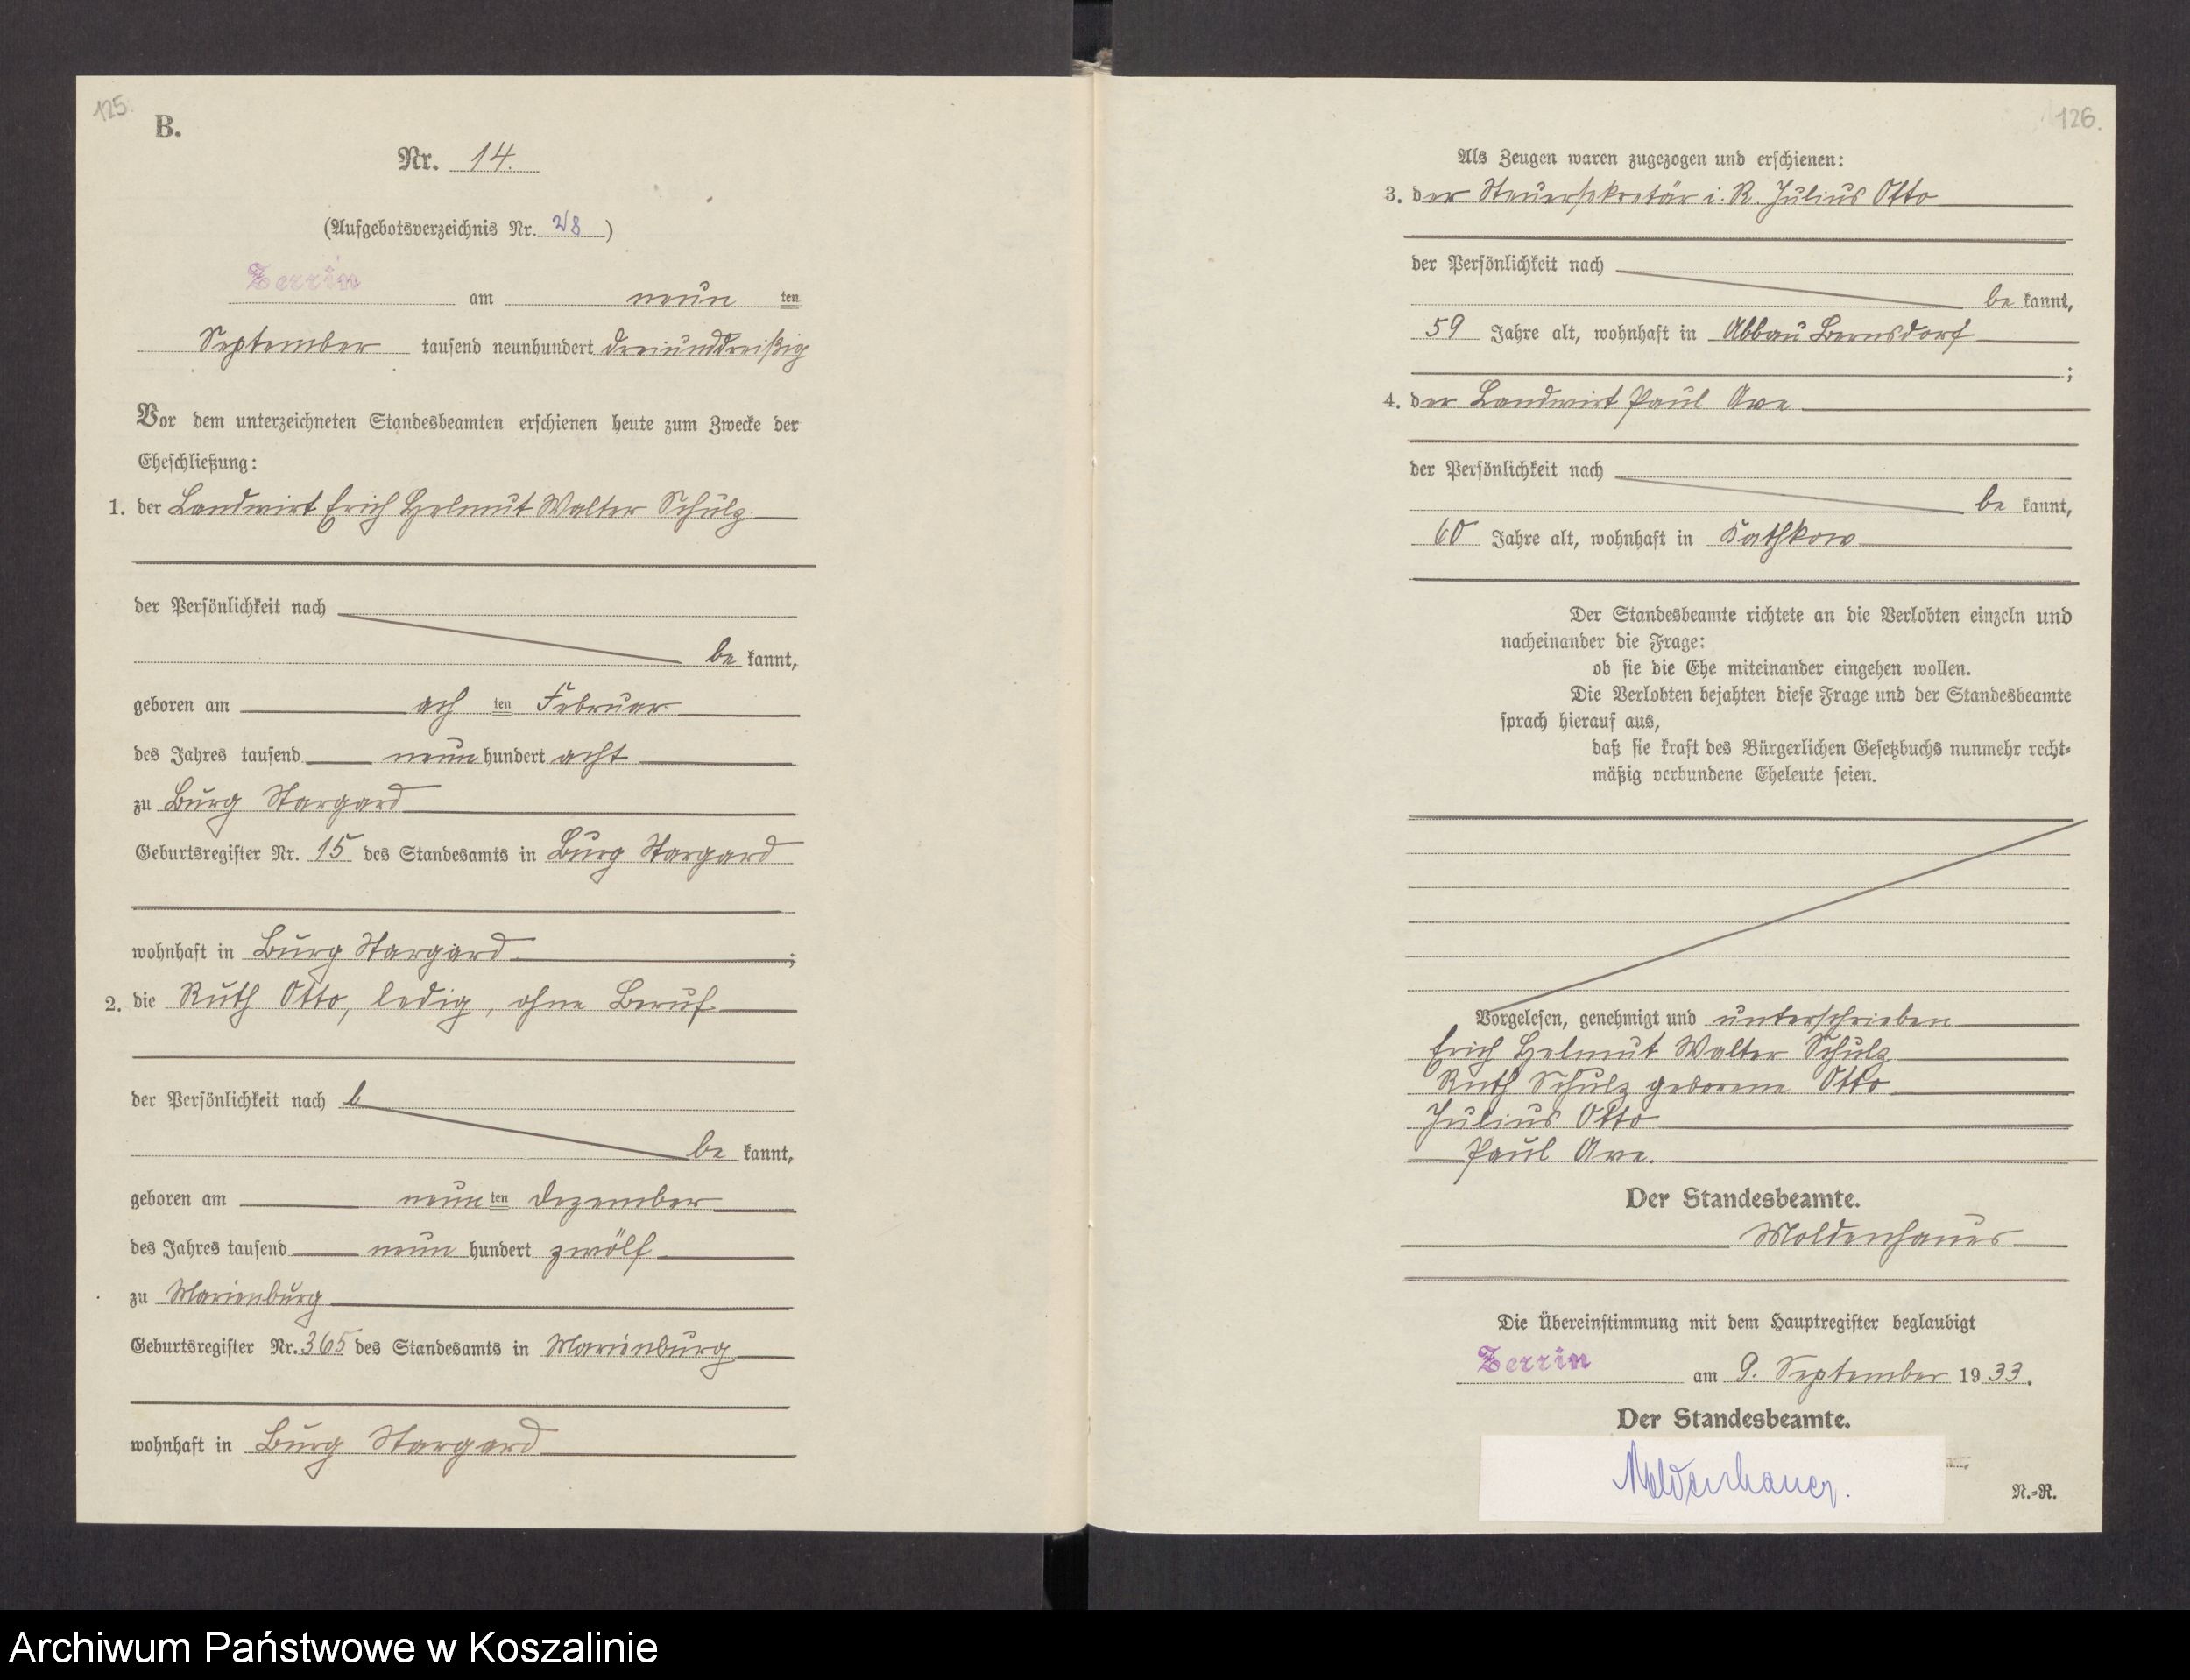 125.
B.
Nr. 14.
(Aufgebotsverzeichnis Nr. 28)
Zerrin am neun ten
September tausend neunhundert dreiunddreißig
Vor dem unterzeichneten Standesbeamten erschienen heute zum Zwecke der
Eheschließung:
1. der Landwirt Erich Helmut Walter Schulz
der Persönlichkeit nach
be kannt,
geboren am ach ten Februar
des Jahres tausend neun hundert acht
zu Burg Stargard
Geburtsregister Nr. 15 des Standesamts in Burg Stargard
wohnhaft in Burg Stargard ;
2. die Ruth Otto, ledig, ohne Beruf
der Persönlichkeit nach b
be kannt,
geboren am neun ten Dezember
des Jahres tausend neun hundert zwölf
zu Marienburg
Geburtsregister Nr. 365 des Standesamts in Marienburg
wohnhaft in Burg Stargard
126.
Als Zeugen waren zugezogen und erschienen:
3. der Steuersekretär i. R. Julius Otto
der Persönlichkeit nach
be kannt,
59 Jahre alt, wohnhaft in Abbau Bernsdorf
;
4. der Landwirt Paul Ave
der Persönlichkeit nach
be kannt,
60 Jahre alt, wohnhaft in Kathkow
Der Standesbeamte richtete an die Verlobten einzeln und
nacheinander die Frage:
ob sie die Ehe miteinander eingehen wollen.
Die Verlobten bejahten diese Frage und der Standesbeamte
sprach hierauf aus,
daß sie kraft des Bürgerlichen Gesetzbuchs nunmehr recht-
mäßig verbundene Eheleute seien.
Vorgelesen, genehmigt und unterschrieben
Erich Helmut Walter Schulz
Ruth Schulz geborene Otto
Julius Otto
Paul Ave.
Der Standesbeamte.
Moldenhauer
Die Übereinstimmung mit dem Hauptregister beglaubigt
Zerrin am 9. September 1933.
Der Standesbeamte.
Moldenhauer.
N.-R.
Archiwum Państwowe w Koszalinie